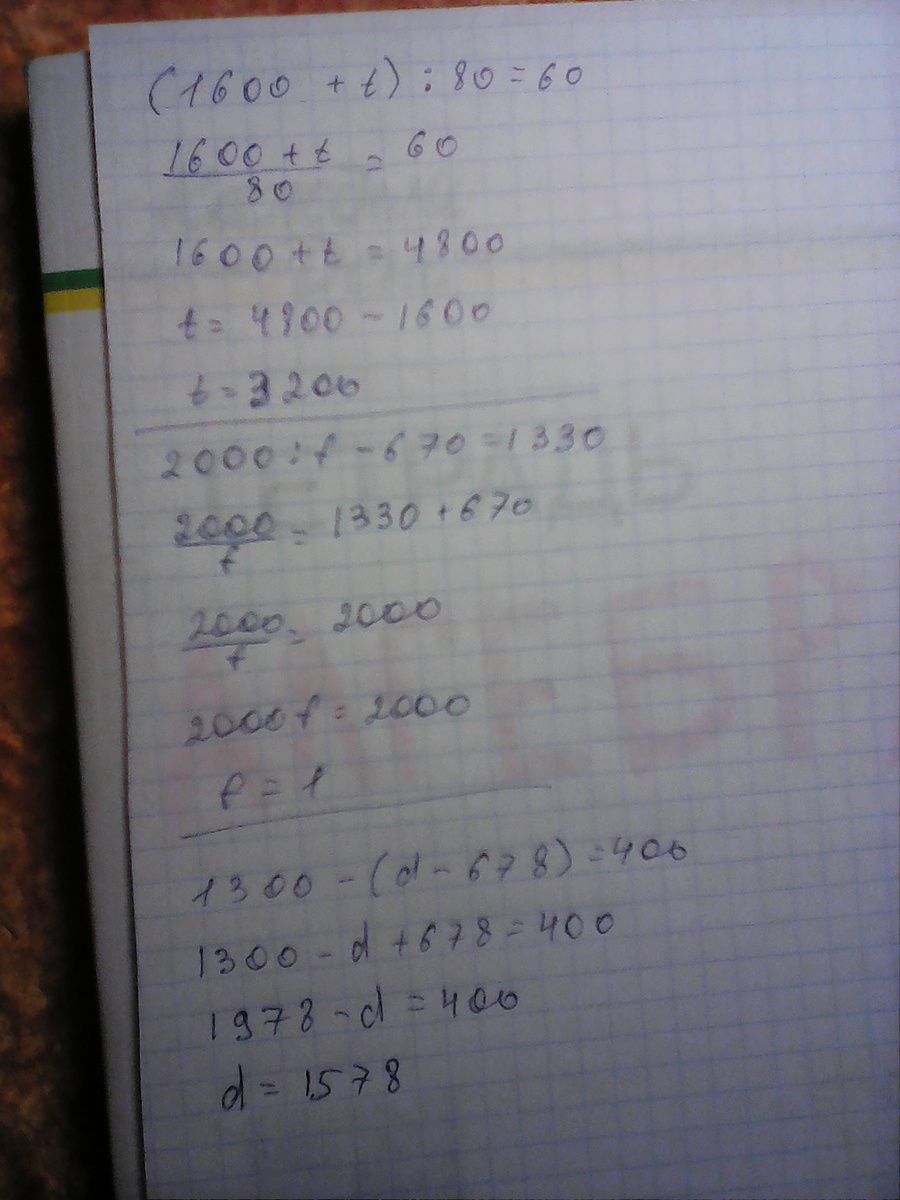 (1600 + t) : 80 = 60
1600 + t
80
= 60
1600 + t = 4800
t = 4800 - 1600
t = 3200
2000 : f - 670 = 1330
2000
f
= 1330 + 670
2000
f
= 2000
2000 f = 2000
f = 1
1300 - (d - 678) = 400
1300 - d + 678 = 400
1978 - d = 400
d = 1578
ТЕТРАДЬ
АЛГЕБР